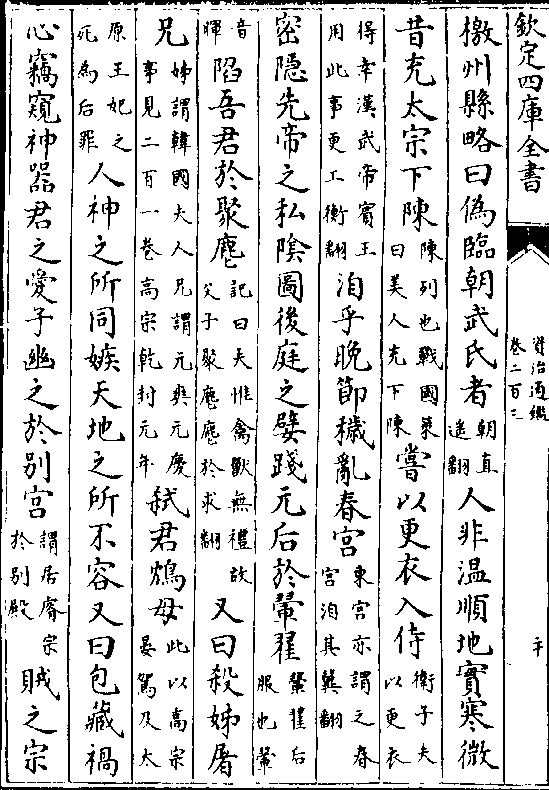 欽定四庫全書
資治通鑑
卷二百三
檄州縣略曰偽臨朝武氏者朝直遙翻人非温順地實寒微
昔充太宗下陳陳列也戰國策曰美人充下陳嘗以更衣入侍衛子夫以更衣
得幸漢武帝賓王用此事更工衡翻洎乎晚節穢亂春宮東宮亦謂之春宮洎其冀翻
密隱先帝之私陰圖後庭之嬖踐元后於翬翟翬翟后服也翬
音暉陷吾君於聚麀記曰夫惟禽獸無禮故父子聚麀麀於求翻又曰殺姊屠
兄姊謂韓國夫人兄謂元爽元慶事見二百一卷高宗乾封元年弑君鴆母此以高宗晏駕及太
原王妃之死為后罪人神之所同嫉天地之所不容又曰包藏禍
心竊窺神器君之愛子幽之於别宮謂居睿宗於别殿賊之宗